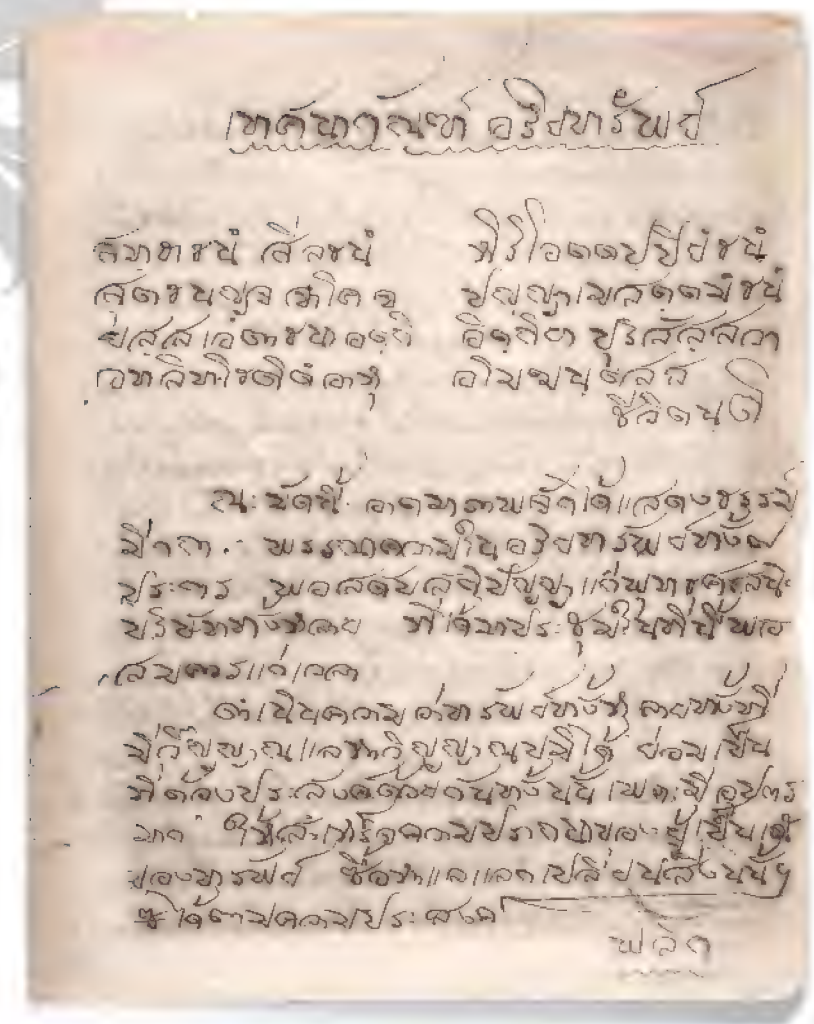 เทศนากัณฑ์ อริยทรัพย์
สทฺธาธนํ สีลธนํ หิริโอตตปฺปิยํ ธนํ
สุตธนญฺจ จาโค จ ปญฺญาเมสตฺตมํธนํ
ยสฺสเอตาธนาอตฺถิ อิตฺถิยา ปุริสสฺสวา
อทลิทฺโทติตํอาหุ อโมฆนฺตสฺส
ชีวิตนฺติ
ณ. บัดนี้ อาตมาภาพจักได้แสดงธรรม์
มิกถา. พรรณาความในอริยทรัพย์ทั้ง ๗
ประการ พอสดับสติปัญญา แด่พุทธศาสนิ
บริษัททั้งหลาย ที่ได้มาประชุมในที่นี้พอ
สมควรแก่เวลา
ดำเนินความว่าทรัพย์ทั้งหลายทั้งที่
มีวิญญาณแลหาวิญญาณบมิได้ ย่อมเป็น
ที่ต้องประสงค์ด้วยกันทั้งนั้น เพราะมีอุปการ
มาก ให้สำเร็จความปรารถนาของผู้เป็นเจ้า
ของทรัพย์ ซื้อหาแลแลกเปลี่ยนสิ่งนั้นๆ
ได้ตามความประสงค์
พลิก